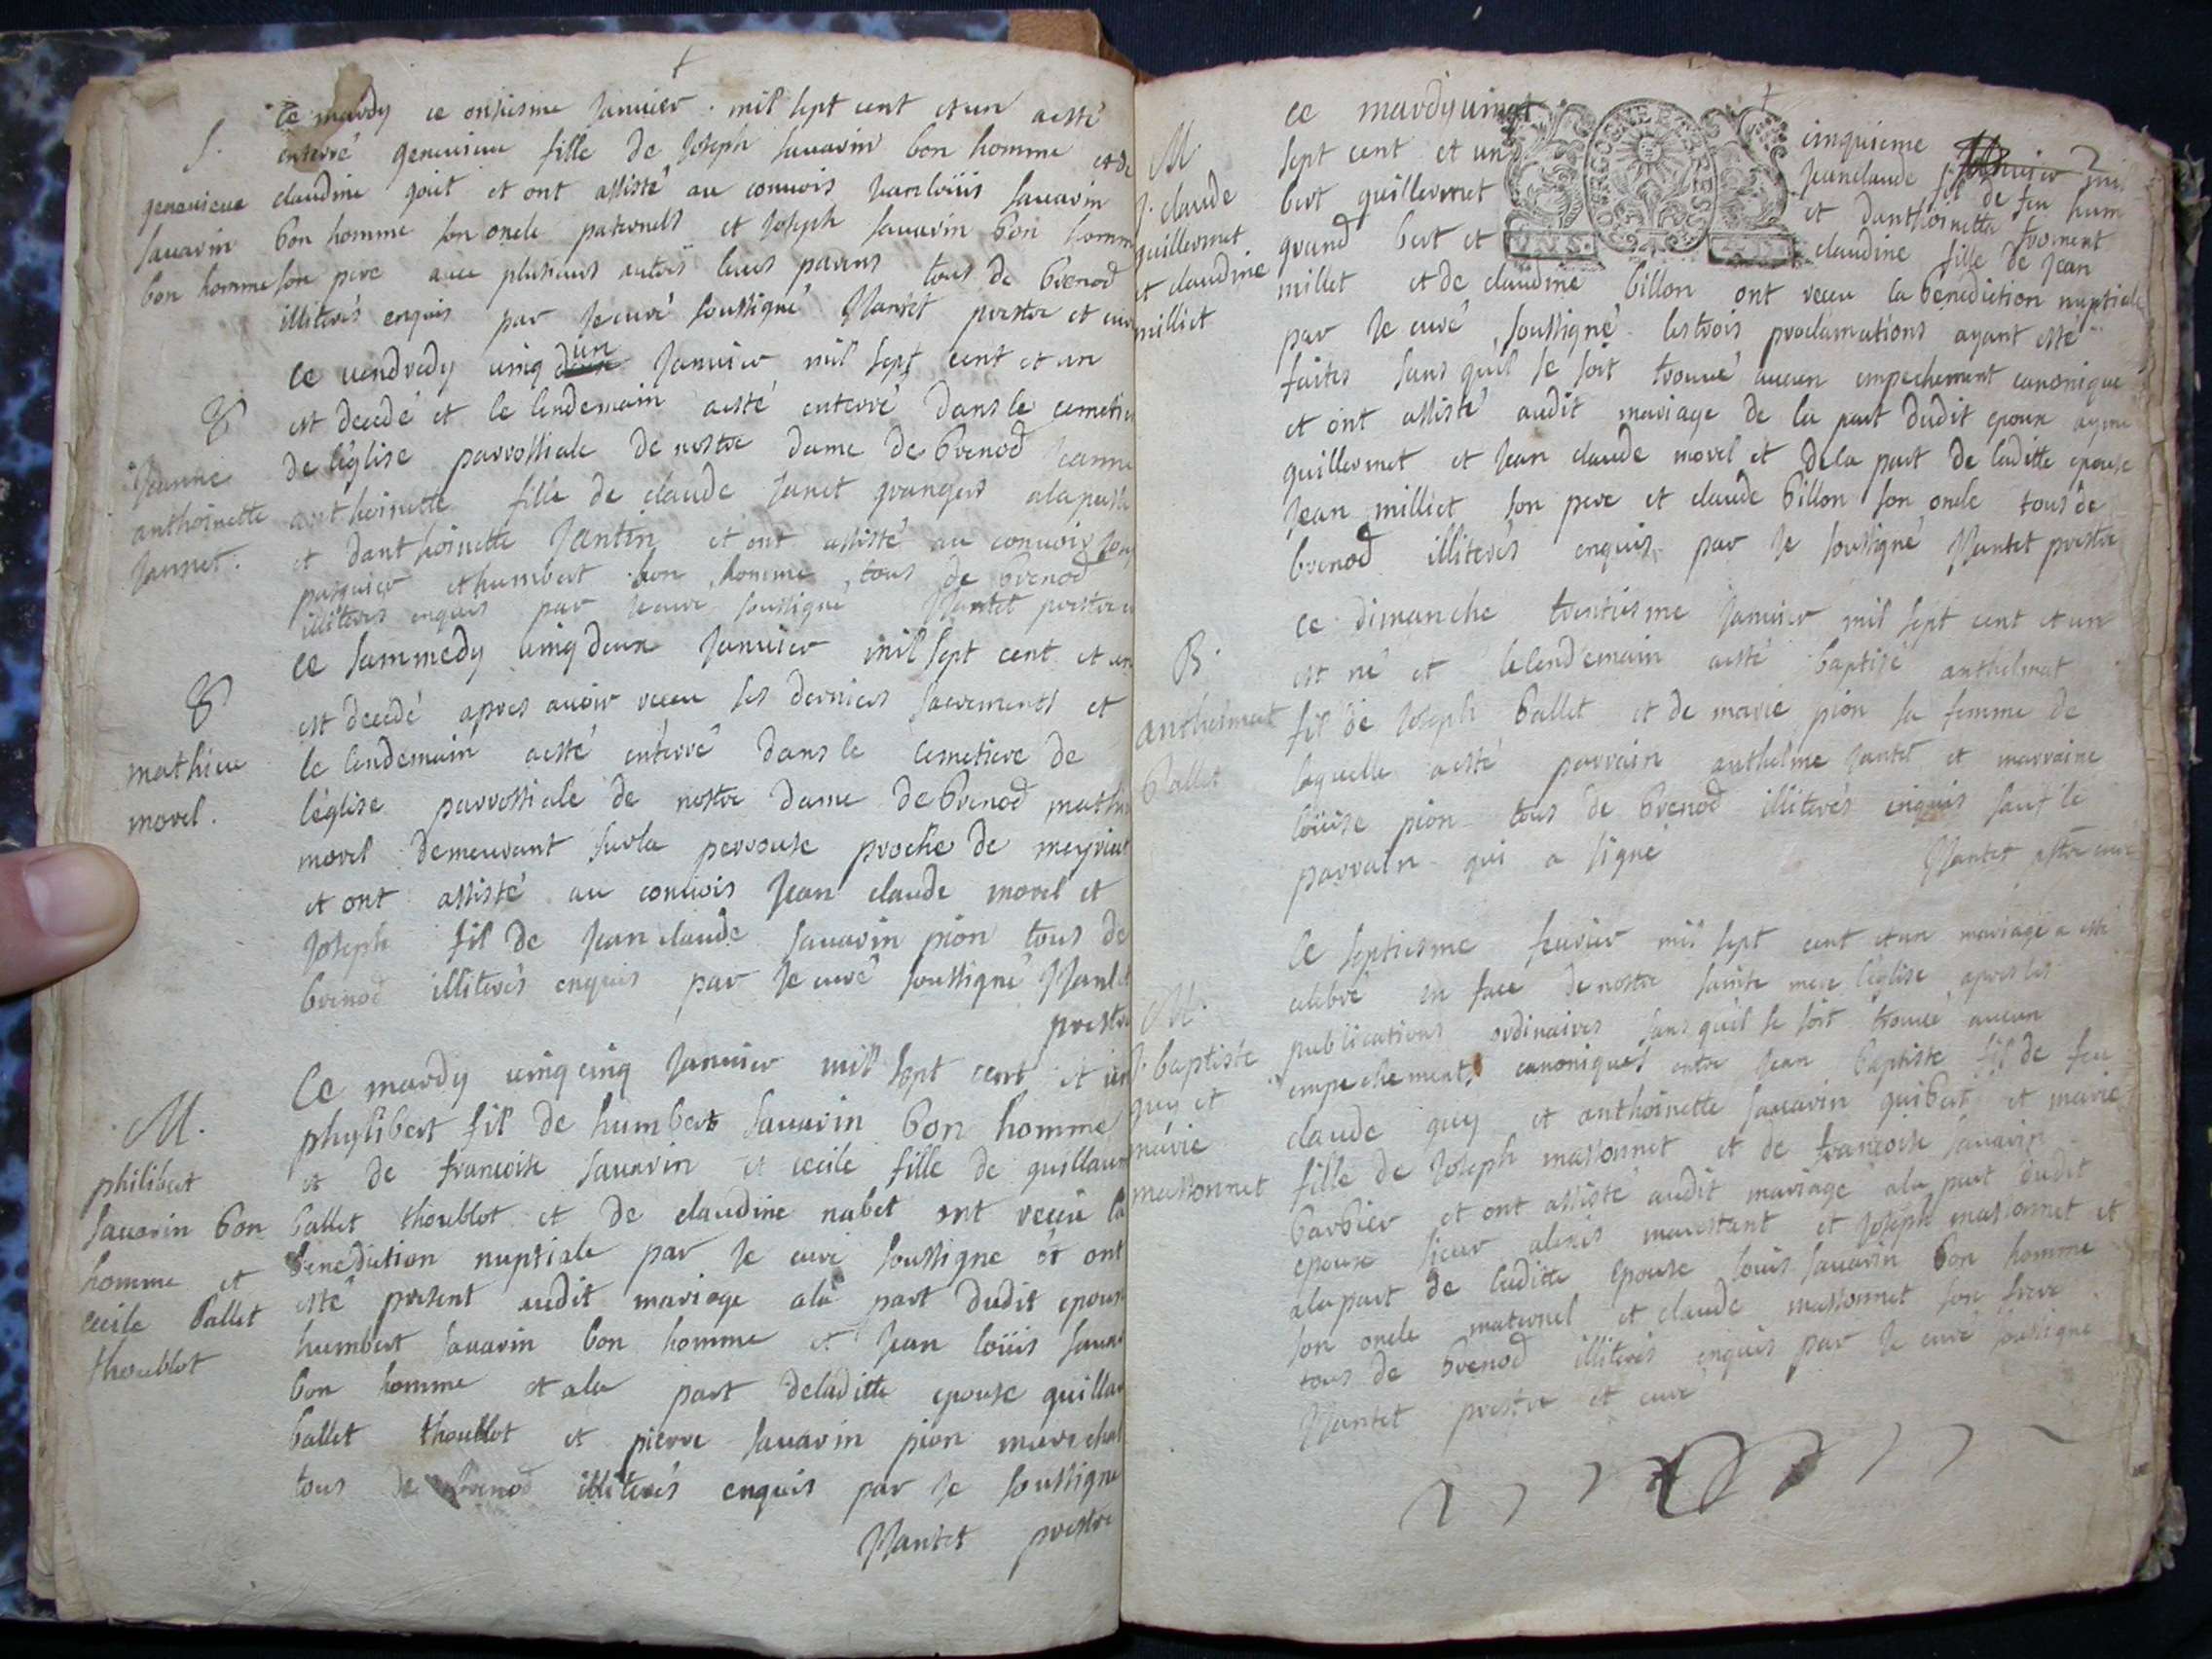 ce mardy ce onziesme Janvier mil sept cent et un a esté
S. enterré genevieve fille de Joseph savarin bon homme et de
genevieve claudine goiet et ont assisté au convois Jean loüis savarin
savarin bon homme son oncle paternels et Joseph savarin bon homm
bon homme son pere avec plusieurs autres leurs parens tous de brenod
illiterés enquis par Je curé soussigné Nantet prestre et curé
ce vendredy vingt un Janvier mil sept cent et un
est decedé et le lendemain a esté enterré dans le cemetie
de l'église parrossiale de nostre dame de brenod Jeanne
Jeanne
anthoinette
Jannet.
anthoinette fille de claude Janet grangers a la
et d'anthoinette Jantin et ont assisté au convois
pasquier et humbert bon homme tous de brenod
illiterés enquis par Je curé soussigné Nantet prestre
ce sammedy vingt deux Janvier mil sept cent et un
est decedé apres avoir receu ses derniers sacrements et
mathieu
morel.
le lendemain a esté enterré dans le cemetiere de
l'église parrossiale de nostre dame de brenod mathieu
morel demeurant sur la perrouse proche de meyriat
et ont assisté au convois Jean claude morel et
Joseph fil de Jean claude savarin pion tous de
brenod illiterés enquis par Je curé soussigné Nantet
prestre
Ce mardy vingt cinq Janvier mil sept cent et un
M.
philibert
savarin bon
homme et
cecile ballet
thoublot
phylibert fil de humbert savarin bon homme
et de francoise savarin et cecile fille de guillaume
ballet thoublot et de claudine nabet ont receu la
benediction nuptiale par Je curé soussigné et ont
esté present audit mariage a la part dudit epoux
humbert savarin bon homme et Jean loüis savarin
bon homme et a la part de laditte epouse guillau
ballet thoublot et pierre savarin pion marechal
tous de brenod illiterés enquis par Je soussigné
Nantet prestre
ce mardy vingt cinquieme Janvier mil
M.
J. claude
guillermet
et claudine
milliet
sept cent et un Jean claude fil de feu hum
bert guillermet et d'anthoinette froment
grand bert et claudine fille de Jean
millet et de claudine billon ont receu la benediction nuptiale
par Je curé soussigné les trois proclamations ayant esté
faites sans qu'il se soit trouvé aucun empechement canonique
et ont assisté audit mariage de la part dudit epoux ayme
guillermet et Jean claude morel et de la part de laditte epouse
Jean milliet son pere et claude billon son oncle tous de
brenod illiterés enquis par Je soussigné Nantet prestre
ce dimanche trentiesme Janvier mil sept cent et un
B.
anthelmet
ballet
est né et le lendemain a esté baptisé anthelmet
fil de Joseph ballet et de marie pion sa femme de
laquelle a esté parrain anthelme Jantet et marraine
loüise pion tous de brenod illiterés enquis sauf le
parrain qui a signé Nantet pstre curé
Ce septiesme fevrier mil sept cent et un mariage a esté
celebré en face de nostre sainte mere l'église apres les
M.
J. baptiste
guy et
marie
massonnet
publications ordinaires sans qu'il se soit trouvé aucun
empechements canoniques entre Jean baptiste fil de feu
claude guy et anthoinette savarin guibert et marie
fille de Joseph massonnet et de francoise savarin
barbier et ont assisté audit mariage a la part dudit
epoux sieur alexis et Joseph massonnet et
a la part de laditte epouse louis savarin bon homme
son oncle maternel et claude massonnet son frere
tous de brenod illiterés enquis par Je curé soussigné
Nantet prestre et curé